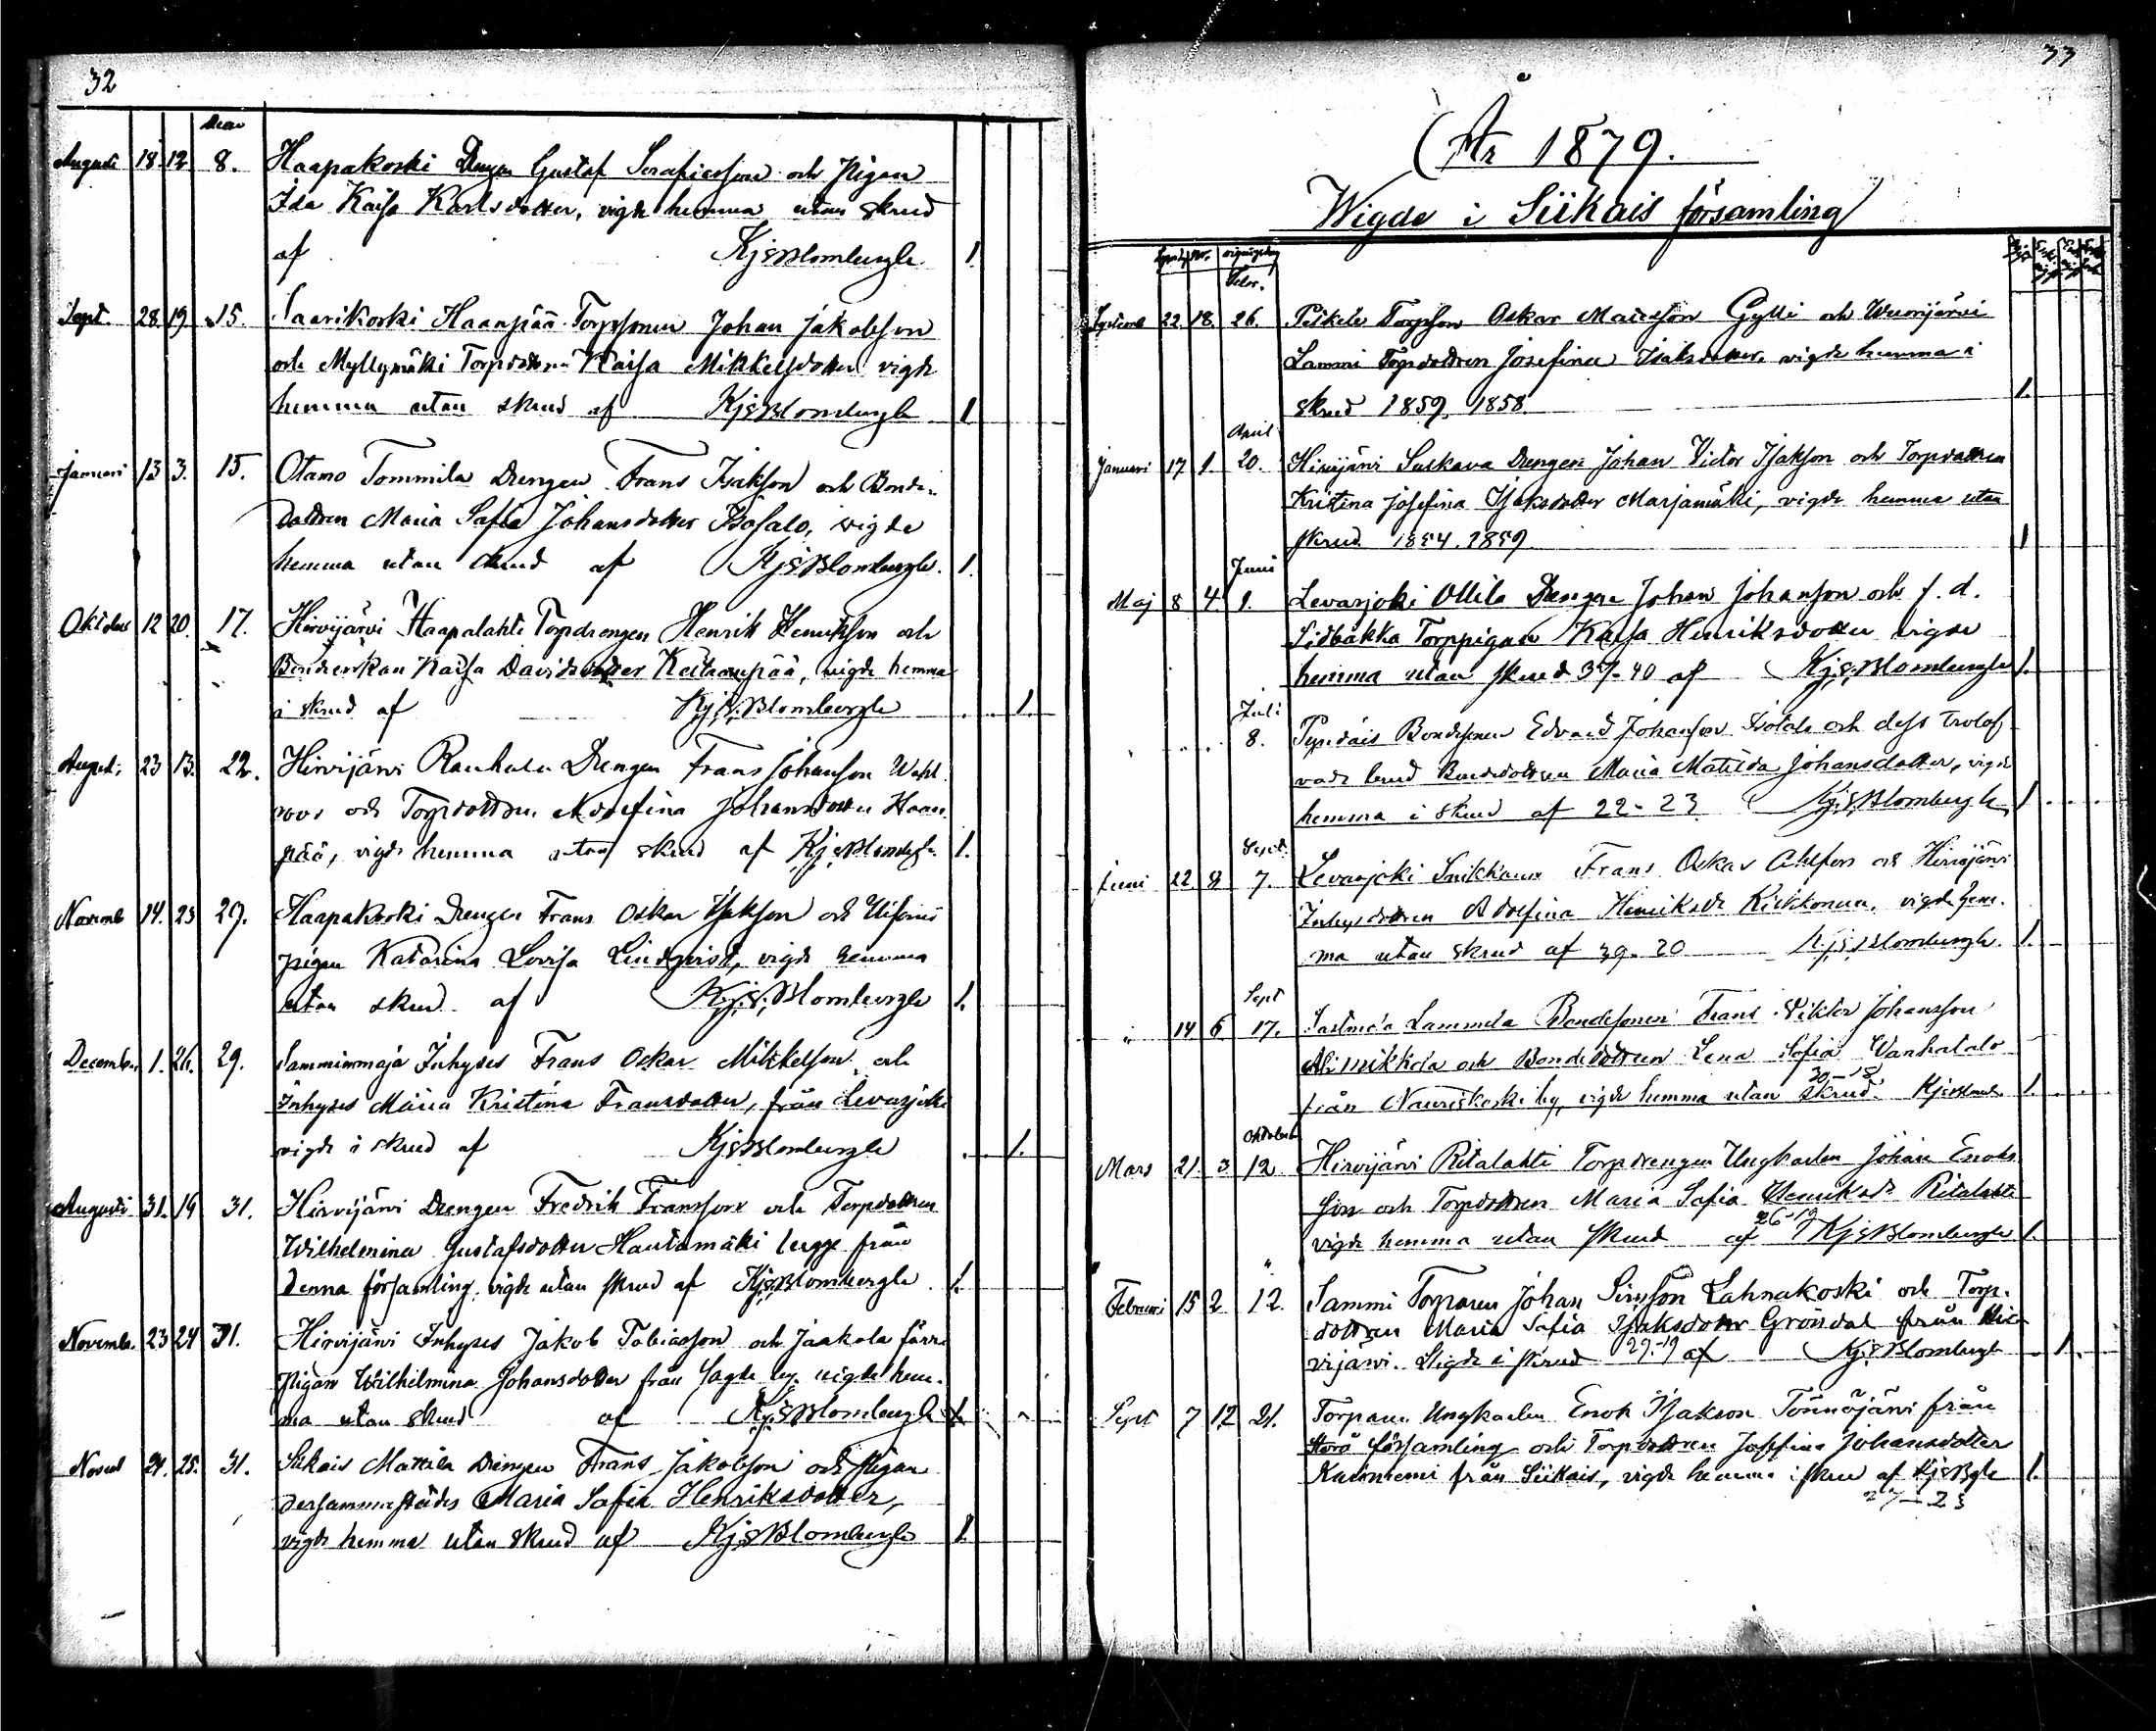 32
Decem
Augusti 18. 12. 8. Haapakoski Drengen Gustaf Serafiasson och Pigan
Ida Kaisa Karlsdotter, vigde hemma utan skrud
af KjEBlombergh. 1.
Sept. 28. 19. 15. Saarikoski Haanpää Torpsonen Johan Jakobsson
och Myllymäki Torpdottren Kaisa Mikkelsdotter vigde
hemma utan skrud af KjEBlombergh 1
Januari 13 3. 15. Otamo Tommila Drengen Frans Isakson och Bonde-
dottren Maria Sofia Johansdotter Isosalo, vigde
hemma utan skrud af KjEBlombergh. 1.
Oktober 12 20. 17. Hirvijärvi Haapalahti Torpdrengen Henrik Henriksson och
Bondenkan Kaisa Davidsdotter Keihanpää, vigde hemma
i skrud af KjEBlombergh 1.
Augusti 23 13. 22. Hirvijärvi Rauhala Drengen Frans Johansson Wahl-
roos och Torpdottren Adolfina Johansdotter Haan-
pää, vigde hemma utan skrud af KjEBlombergh. 1.
Novemb 14. 23 29. Haapakoski Drengen Frans Oskar Isakson och
pigan Katarina Lovisa Lindqvist, vigde hemma
utan skrud af KjEBlombergh 1.
December 1. 26. 29. Sammimaja Inhyses Frans Oskar Mikkelsson och
Inhyses Maria Kristina Fransdotter, från Levasjoki
vigde i skrud af KjEBlombergh 1.
Augusti 31. 14 31. Hirvijärvi Drengen Fredrik Fransson och Torpdottren
Wilhelmina Gustafsdotter Hautamäki begge från
denna församling, vigde utan skrud af KjEBlombergh 1.
Novemb. 23 24 31. Hirvijärvi Inhyses Jakob Tobiasson och Jaakola förra
Pigan Wilhelmina Johansdotter från by, vigde hem-
ma utan skrud af KjEBlombergh 1.
Novemb 24. 25. 31. Siikais Mattila Drengen Frans Jakobsson och Pigan
dersammastädes Maria Sofia Henriksdotter,
vigde hemma utan skrud af KjEBlombergh 1.
33
År 1879.
Wigde i Siikais församling
Febr.
22. 18. 26. Torpson Oskar Gylli och Wuorijärvi
Lammi Torpdottren Josefina Isaksdotter, vigde hemma i
skrud 1859. 1858. 1.
April
Januari 17 1. 20. Hirvijärvi Drengen Johan Victor Isakson och Torpdottren
Kristina Josefina Isaksdotter Marjamäki, vigde hemma utan
skrud. 1854. 1859. 1
Juni
Maj 8 4 1. Levasjoki Ollila Drengen Johan Johansson och f. d.
Sidbakka Torppigan Kaisa Henriksdotter vigde
hemma utan skrud 37-40 af KjEBlombergh 1.
Juli
8. Bondesonen Edvard Johansson Isotalo och dess trolof-
vade brud Bondedottren Maria Matilda Johansdotter, vigde
hemma i skrud af 22-23 KjEBlombergh 1
Sept.
Juni 22. 8 7. Levasjoki Frans Oskar Ahlfors och Hirvijärvi
Inhysdottren Adolfina Henriksdr Riikkonen, vigde hem-
ma utan skrud af 39-20 KjEBlombergh. 1.
Sept
" 14 6 17. Sastmola Lammela Bondesonen Frans Viktor Johansson
Alimikkola och Bondedottren Lena Sofia Wanhatalo
30-18
från Nauriskoski by, vigde hemma utan skrud. KjEBlomb 1.
Oktober
Mars 21. 3. 12. Hirvijärvi Ritalahti Torpdrengen Ungkarlen Johan Enoks-
son och Torpdottren Maria Sofia Henriksdr Ritalahti
26-19
vigde hemma utan skrud af KjEBlombergh 1.
"
Februari 15 2. 12. Sammi Torparen Johan Simsson Lahnakoski och Torp-
dottren Maria Sofia Isaksdotter Gröndal från Hir-
virjärvi. Vigde i skrud 29-19 af KjEBlombergh 1.
Sept 7 12 21. Torparen Ungkarlen Enok Isakson Tönnöjärvi från
Storå församling och Torpdottren Josefina Johansdotter
Kauniemi från Siikais, vigde hemma i skrud af KjEBgh 1.
27-23